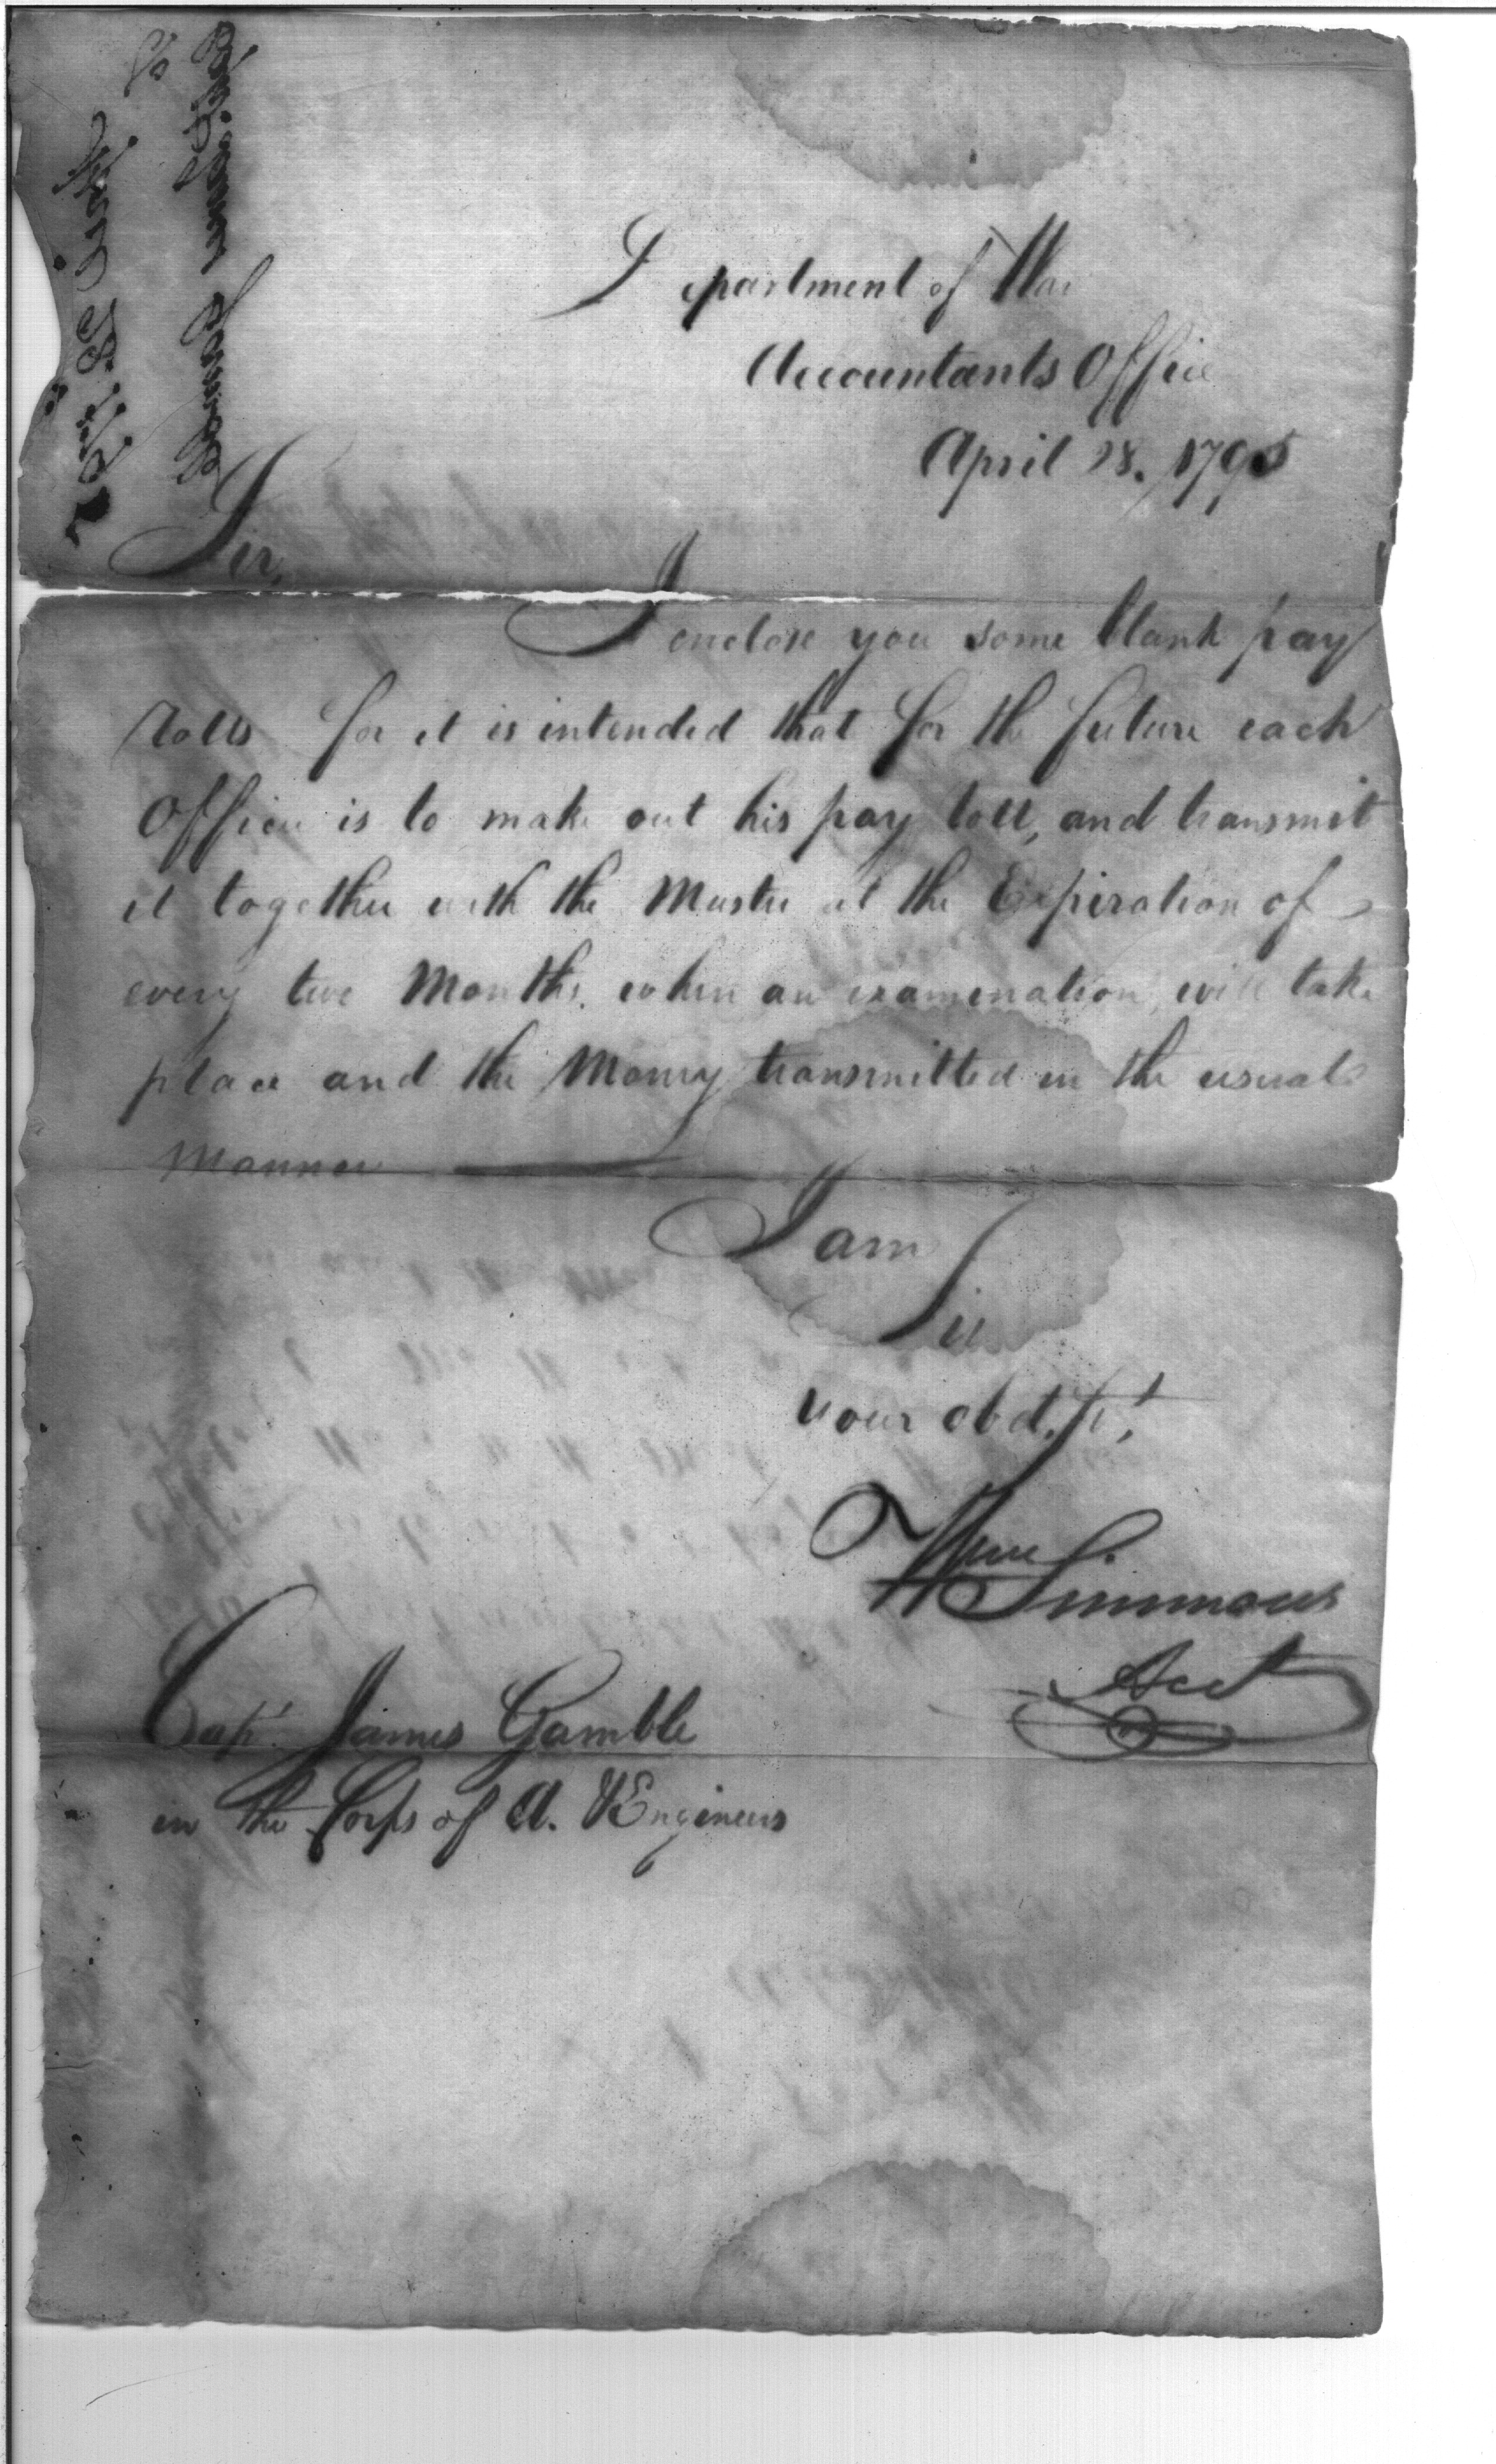 Department of War
Accountants Office
April 28. 1795
Sir,
I enclose you some blank pay
rolls for it is intended that for the future each
Officer is to make out his pay roll, and transmit
it together with the Muster at the Expiration of
every two Months, when an examination, will take
place and the Money transmitted in the usual
Manner
I am
Sir
your obd. St,
Wm Simmons
Acct
Capt. James Gamble
in the Corps of A. & Engineers